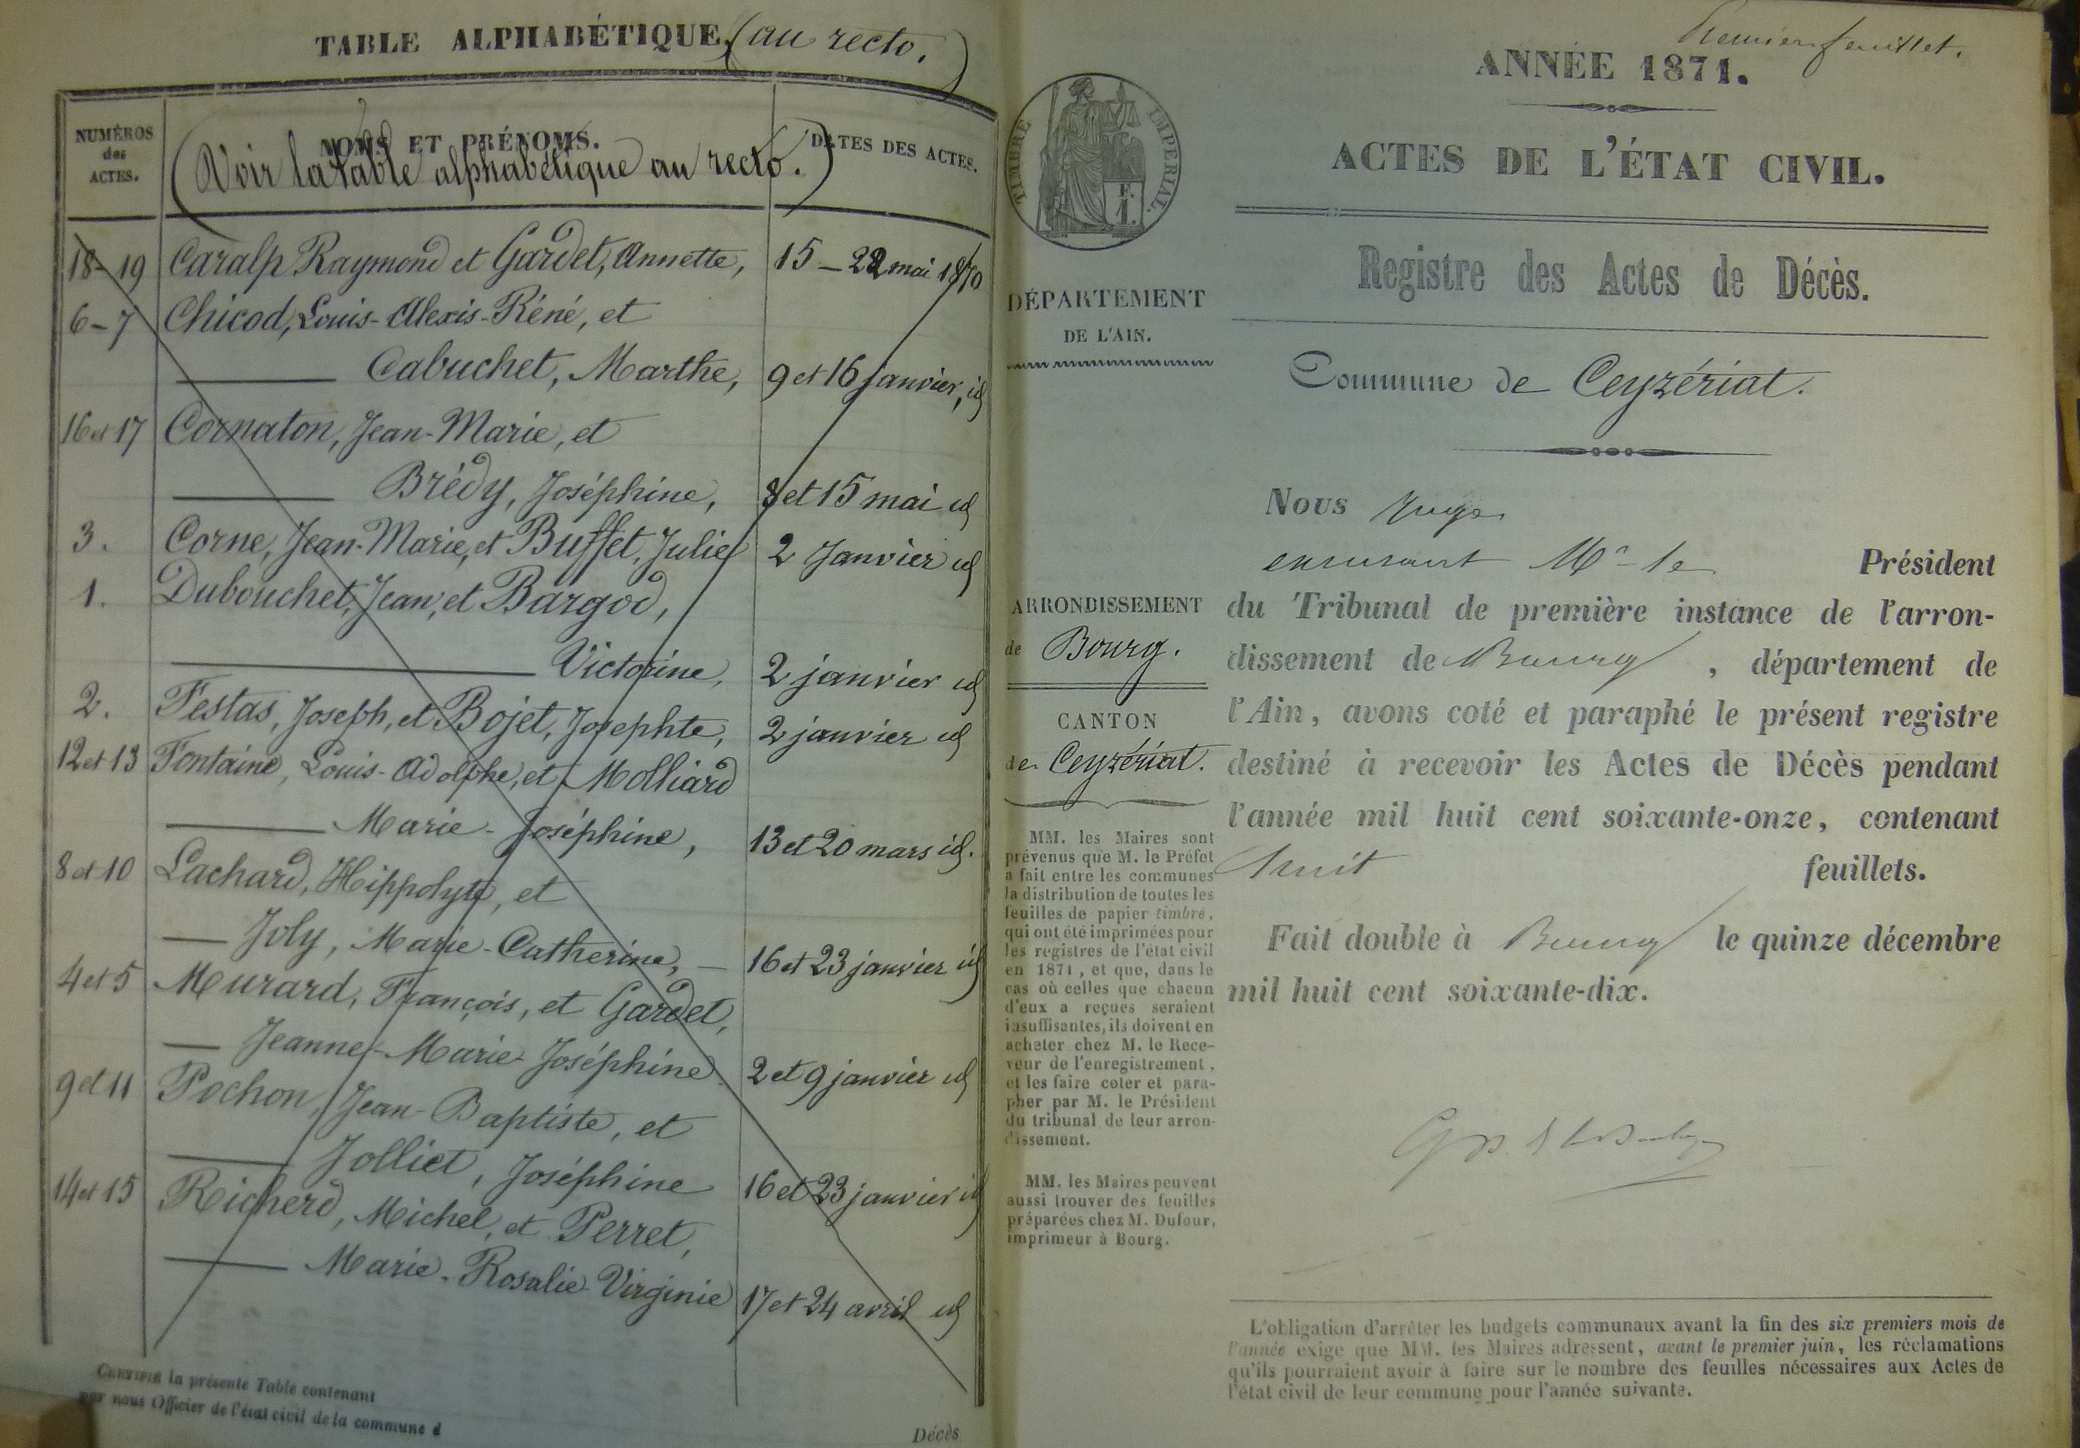 TABLE ALPHABÉTIQUE. (au recto.)
NUMÉROS des ACTES.
NOMS ET PRÉNOMS.
DATES DES ACTES.
(Voir la table alphabétique au recto.)
18-19 Caralp Raymond et Gardet, Annette, 15-22 mai 1870
6-7 Chicod, Louis-Alexis-Réné, et
Cabuchet, Marthe, 9 et 16 janvier, id
16 et 17 Cornaton, Jean-Marie, et
Brédy, Joséphine, 8 et 15 mai id
3. Corne, Jean-Marie, et Buffet, Julie 2 Janvier id
1. Dubouchet, Jean, et Bargod,
Victorine, 2 janvier id
2. Festas, Joseph, et Bojet, Josephte, 2 janvier id
12 et 13 Fontaine, Louis-Adolphe, et Molliard
Marie-Joséphine, 13 et 20 mars id.
8 et 10 Lachard, Hippolyte, et
Joly, Marie-Catherine, - 16 et 23 janvier id
4 et 5 Murard, François, et Gardet,
Jeanne-Marie-Joséphine 2 et 9 janvier id
9 et 11 Pochon, Jean-Baptiste, et
Jolliet, Joséphine 16 et 23 janvier id
14 et 15 Richerd, Michel, et Perret,
Marie-Rosalie-Virginie 17 et 24 avril id
CERTIFIÉ la présente Table contenant
par nous Officier de l'état civil de la commune d
Décès
Premier feuillet.
ANNÉE 1871.
ACTES DE L'ÉTAT CIVIL.
Registre des Actes de Décès.
Commune de Ceyzériat.
TIMBRE IMPERIAL.
F.
1.
DÉPARTEMENT
DE L'AIN.
ARRONDISSEMENT
de Bourg.
CANTON
de Ceyzériat.
MM. les Maires sont
prévenus que M. le Préfet
a fait entre les communes
la distribution de toutes les
feuilles de papier timbré,
qui ont été imprimées pour
les registres de l'état civil
en 1871, et que, dans le
cas où celles que chacun
d'eux a reçues seraient
insuffisantes, ils doivent en
acheter chez M. le Rece-
veur de l'enregistrement,
et les faire coter et para-
pher par M. le Président
du tribunal de leur arron-
dissement.
MM. les Maires peuvent
aussi trouver des feuilles
préparées chez M. Dufour,
imprimeur à Bourg.
Nous Juge
Mr le Président
du Tribunal de première instance de l'arron-
dissement de Bourg, département de
l'Ain, avons coté et paraphé le présent registre
destiné à recevoir les Actes de Décès pendant
l'année mil huit cent soixante-onze, contenant
huit feuillets.
Fait double à Bourg le quinze décembre
mil huit cent soixante-dix.
L'obligation d'arrêter les budgets communaux avant la fin des six premiers mois de
l'année exige que MM. les Maires adressent, avant le premier juin, les réclamations
qu'ils pourraient avoir à faire sur le nombre des feuilles nécessaires aux Actes de
l'état civil de leur commune pour l'année suivante.